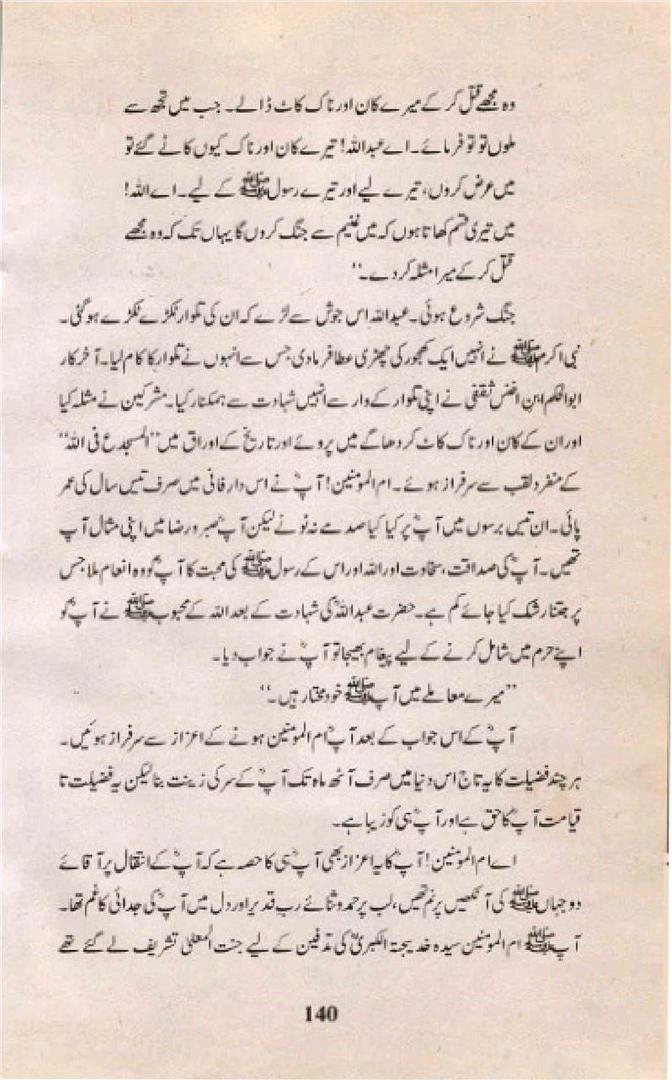 وہ مجھے قتل کر کے میرے کان اور ناک کاٹ ڈالے۔ جب میں تجھ سے
ملوں تو تو فرمائے۔ اے عبداللہ! تیرے کان اور ناک کیوں کاٹے گئے تو
میں عرض کروں، تیرے لیے اور تیرے رسول ﷺ کے لیے۔ اے اللہ!
میں تیری قسم کھاتا ہوں کہ میں غنیم سے جنگ کروں گا یہاں تک کہ وہ مجھے
قتل کر کے میرا مثلہ کر دے۔"
جنگ شروع ہوئی۔ عبداللہ اس جوش سے لڑے کہ ان کی تلوار ٹکڑے ٹکڑے ہو گئی۔
نبی اکرم ﷺ نے انہیں ایک کھجور کی چھڑی عطا فرما دی جس سے انہوں نے تلوار کا کام لیا۔ آخر کار
ابوالحکم ابن اخنس ثقفی نے اپنی تلوار کے وار سے انہیں شہادت سے ہمکنار کیا۔ مشرکین نے مثلہ کیا
اور ان کے کان اور ناک کاٹ کر دھاگے میں پروئے اور تاریخ کے اوراق میں "المجدع فی اللہ"
کے منفرد لقب سے سرفراز ہوئے۔ ام المومنین! آپؓ نے اس دار فانی میں صرف تیس سال کی عمر
پائی۔ ان تیس برسوں میں آپؓ پر کیا کیا صدمے نہ ٹوٹے لیکن آپؓ صبر و رضا میں اپنی مثال آپ
تھیں۔ آپؓ کی صداقت، سخاوت اور اللہ اور اس کے رسول ﷺ کی محبت کا آپؓ کو وہ انعام ملا جس
پر جتنا رشک کیا جائے کم ہے۔ حضرت عبداللہؓ کی شہادت کے بعد اللہ کے محبوب ﷺ نے آپؓ کو
اپنے حرم میں شامل کرنے کے لیے پیغام بھیجا تو آپؓ نے جواب دیا۔
"میرے معاملے میں آپ ﷺ خود مختار ہیں۔"
آپؓ کے اس جواب کے بعد آپؓ ام المومنین ہونے کے اعزاز سے سرفراز ہوئیں۔
ہر چند فضیلت کا یہ تاج اس دنیا میں صرف آٹھ ماہ تک آپؓ کے سر کی زینت بنا لیکن یہ فضیلت تا
قیامت آپؓ کا حق ہے اور آپؓ ہی کو زیبا ہے۔
اے ام المومنین! آپؓ کا یہ اعزاز بھی آپؓ ہی کا حصہ ہے کہ آپؓ کے انتقال پر آقائے
دو جہاں ﷺ کی آنکھیں پرنم تھیں، لب پر حمد و ثنائے رب قدیر اور دل میں آپؓ کی جدائی کا غم تھا۔
آپ ﷺ ام المومنین سیدہ خدیجۃ الکبریٰؓ کی تدفین کے لیے جنت المعلیٰ تشریف لے گئے تھے
140